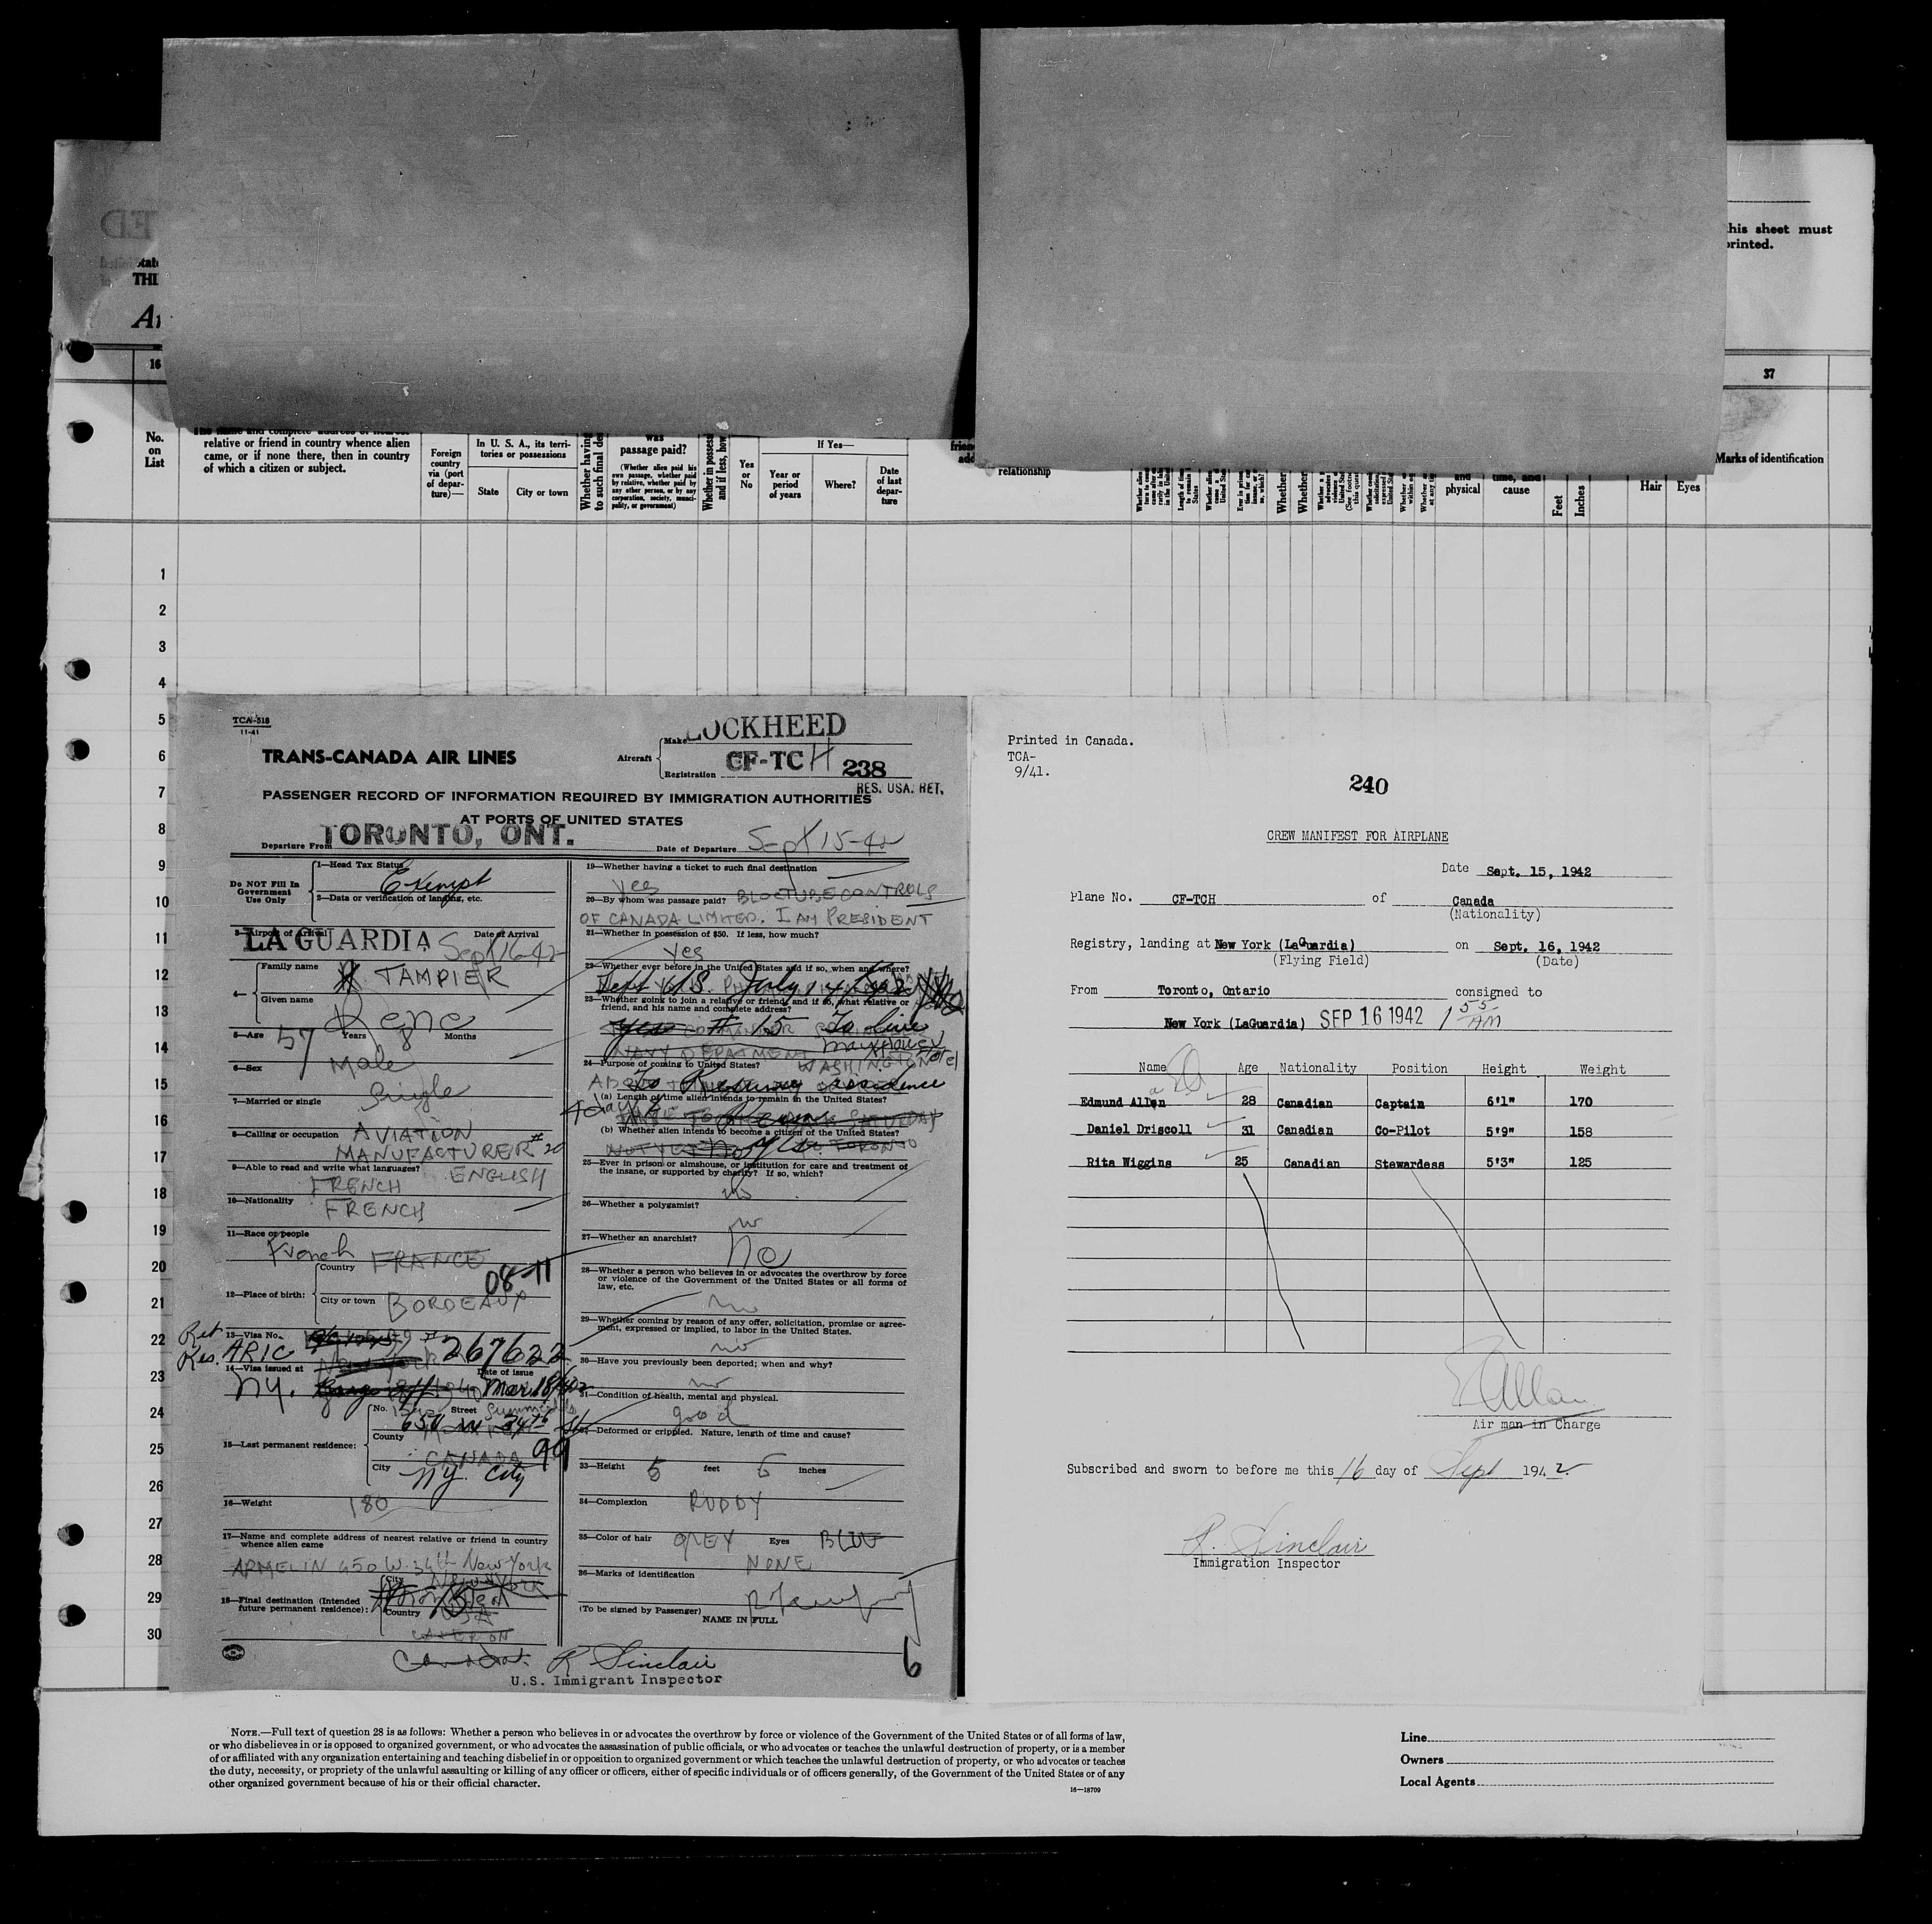 this sheet must
printed.
THE
16
37
No.
on
List
relative or friend in country whence alien
came, or if none there, then in country
of which a citizen or subject.
Foreign
country
via (port
of depar-
ture)—
In U. S. A., its terri-
tories or possessions
State
City or town
Whether having
to such final de
was
passage paid?
(Whether alien paid his
own passage, whether paid
by relative, whether paid by
any other person, or by any
corporation, society, munici-
pality, or government)
Whether in possess
and if less, how
Yes
or
No
If Yes—
Year or
period
of years
Where?
Date
of last
depar-
ture
relationship
and
physical
time, and
cause
Feet
Inches
Hair
Eyes
Marks of identification
1
2
3
4
5
6
7
8
9
10
11
12
13
14
15
16
17
18
19
20
21
22
23
24
25
26
27
28
29
30
TCA-518
11-41
TRANS-CANADA AIR LINES
Aircraft
Make LOCKHEED
Registration CF-TC H 238
RES. USA. RET.
PASSENGER RECORD OF INFORMATION REQUIRED BY IMMIGRATION AUTHORITIES
AT PORTS OF UNITED STATES
Departure From TORONTO, ONT. Date of Departure Sept 15-42
Do NOT Fill In
Government
Use Only
1—Head Tax Status
Exempt
2—Data or verification of landing, etc.
3—Airport of Arrival Date of Arrival
LA GUARDIA Sept 16-42
4—
Family name
TAMPIER
Given name
Rene
5—Age 57 Years 8 Months
6—Sex Male
7—Married or single Single
8—Calling or occupation AVIATION
MANUFACTURER #20
9—Able to read and write what languages?
FRENCH ENGLISH
10—Nationality FRENCH
11—Race or people
French FRANCE
12—Place of birth:
Country
08-11
City or town BORDEAUX
Ret
Res.
13—Visa No.
ARIC # 267622
14—Visa issued at Date of issue
NY. Mar 18
15—Last permanent residence:
No. Street
650 W 34th St
County
CANADA 99
City NY. City
16—Weight 180
17—Name and complete address of nearest relative or friend in country
whence alien came
ARMELIN 450 W. 34th New York
18—Final destination (Intended
future permanent residence):
City New York
Country USA
19—Whether having a ticket to such final destination
Yes
20—By whom was passage paid? BLOCTUBE CONTROLS
OF CANADA LIMITED. I AM PRESIDENT
21—Whether in possession of $50. If less, how much?
Yes
22—Whether ever before in the United States and if so, when and where?
23—Whether going to join a relative or friend, and if so, what relative or
friend, and his name and complete address?
NAVY DEPARTMENT
WASHINGTON
24—Purpose of coming to United States?
To Resume residence
(a) Length of time alien intends to remain in the United States?
4 days
(b) Whether alien intends to become a citizen of the United States?
25—Ever in prison or almshouse, or institution for care and treatment of
the insane, or supported by charity? If so, which?
no
26—Whether a polygamist?
no
27—Whether an anarchist?
No
28—Whether a person who believes in or advocates the overthrow by force
or violence of the Government of the United States or all forms of
law, etc.
no
29—Whether coming by reason of any offer, solicitation, promise or agree-
ment, expressed or implied, to labor in the United States.
no
30—Have you previously been deported; when and why?
no
31—Condition of health, mental and physical.
good
32—Deformed or crippled. Nature, length of time and cause?
33—Height 5 feet 6 inches
34—Complexion RUDDY
35—Color of hair GREY Eyes BLUE
NONE
36—Marks of identification
(To be signed by Passenger)
NAME IN FULL
R Sinclair
U.S. Immigrant Inspector
6
Printed in Canada.
TCA-
9/41.
240
CREW MANIFEST FOR AIRPLANE
Date Sept. 15, 1942
Plane No. CF-TCH of Canada
(Nationality)
Registry, landing at New York (LaGuardia) on Sept. 16, 1942
(Flying Field) (Date)
From Toronto, Ontario consigned to
New York (LaGuardia) SEP 16 1942 1 55 AM
Name Age Nationality Position Height Weight
Edmund Allan 28 Canadian Captain 6'1" 170
Daniel Driscoll 31 Canadian Co-Pilot 5'9" 158
Rita Wiggins 25 Canadian Stewardess 5'3" 125
E Allan
Air man in Charge
Subscribed and sworn to before me this 16 day of Sept 1942
R. Sinclair
Immigration Inspector
NOTE.—Full text of question 28 is as follows: Whether a person who believes in or advocates the overthrow by force or violence of the Government of the United States or of all forms of law,
or who disbelieves in or is opposed to organized government, or who advocates the assassination of public officials, or who advocates or teaches the unlawful destruction of property, or is a member
of or affiliated with any organization entertaining and teaching disbelief in or opposition to organized government or which teaches the unlawful destruction of property, or who advocates or teaches
the duty, necessity, or propriety of the unlawful assaulting or killing of any officer or officers, either of specific individuals or of officers generally, of the Government of the United States or of any
other organized government because of his or their official character.
16—18709
Line
Owners
Local Agents